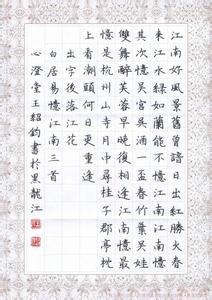 江南好風景舊曾諳日出紅勝火春
来江水綠如蘭能不憶江南江南憶
其次憶吳宮吳酒一盃春竹葉吳娃
雙舞醉芙蓉早晚復相逢江南憶最
憶是杭州山寺月中尋桂子郡亭枕
上看潮頭何日更重逢
出字後落江花
白居易憶江南三首
心澄堂王紹鈞書於黑龍江